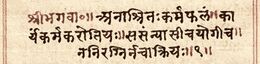 श्रीभगवा॰॥अनाश्रितःकर्मफलं॥का
र्यंकर्मकरोतियः॥ससंन्यासीचयोगीच
ननिरग्निर्नचाक्रियः॥१॥